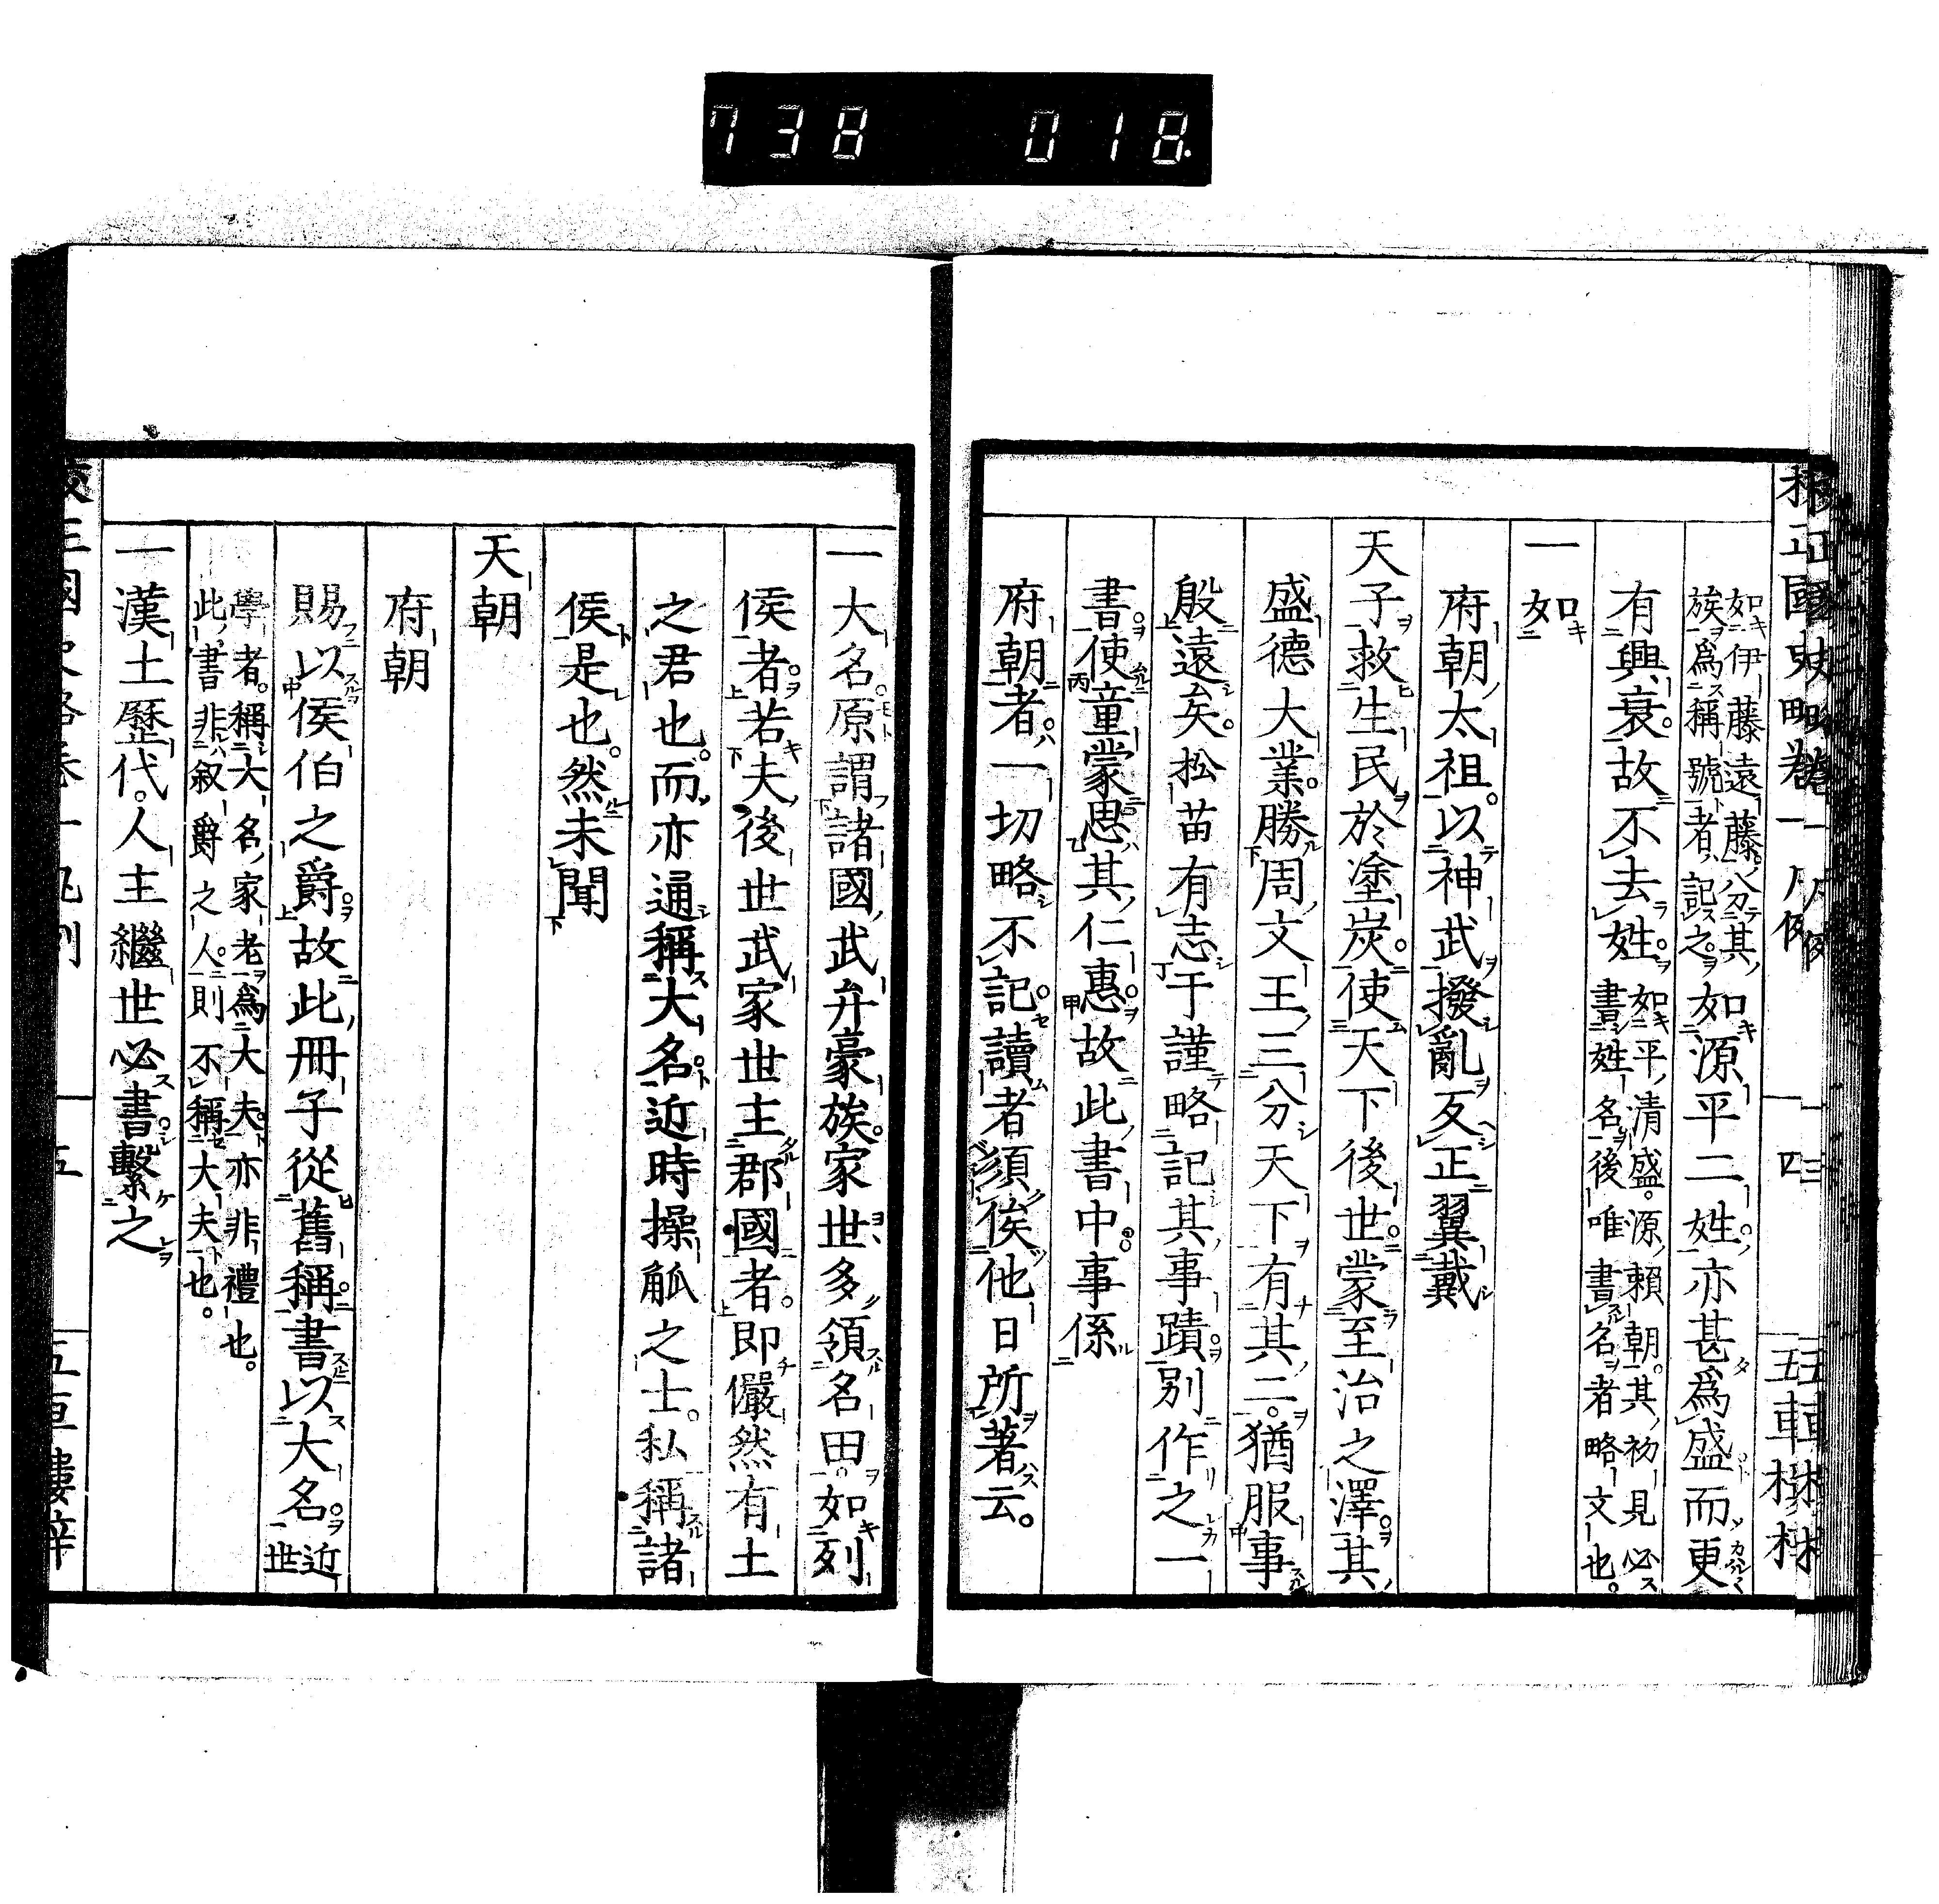 738 018
如伊藤遠藤分其
族為稱號者記之
如源平二姓亦甚為盛而更
有興衰故不去姓
如平清盛源賴朝其初見必
書姓名後唯書名者略文也。
一如
府朝太祖以神武撥亂反正翼戴
天子救生民於塗炭使天下後世蒙至治之澤其
盛德大業勝周文王三分天下有其二猶服事
殷遠矣松苗有志于謹略記其事蹟別作之一
書使童蒙思其仁惠故此書中事係
府朝者一切略不記讀者須俟他日所著云。
一大名原謂諸國武弁豪族家世多領名田如列
侯者若夫後世武家世主郡國者即儼然有土
之君也而亦通稱大名近時操觚之士私稱諸
侯是也然未聞
天朝
府朝
賜以侯伯之爵故此冊子從舊稱書以大名
近世
學者稱大名家老為大夫亦非禮也。
此書非叙爵之人則不稱大夫也。
一漢土歷代人主繼世必書繫之